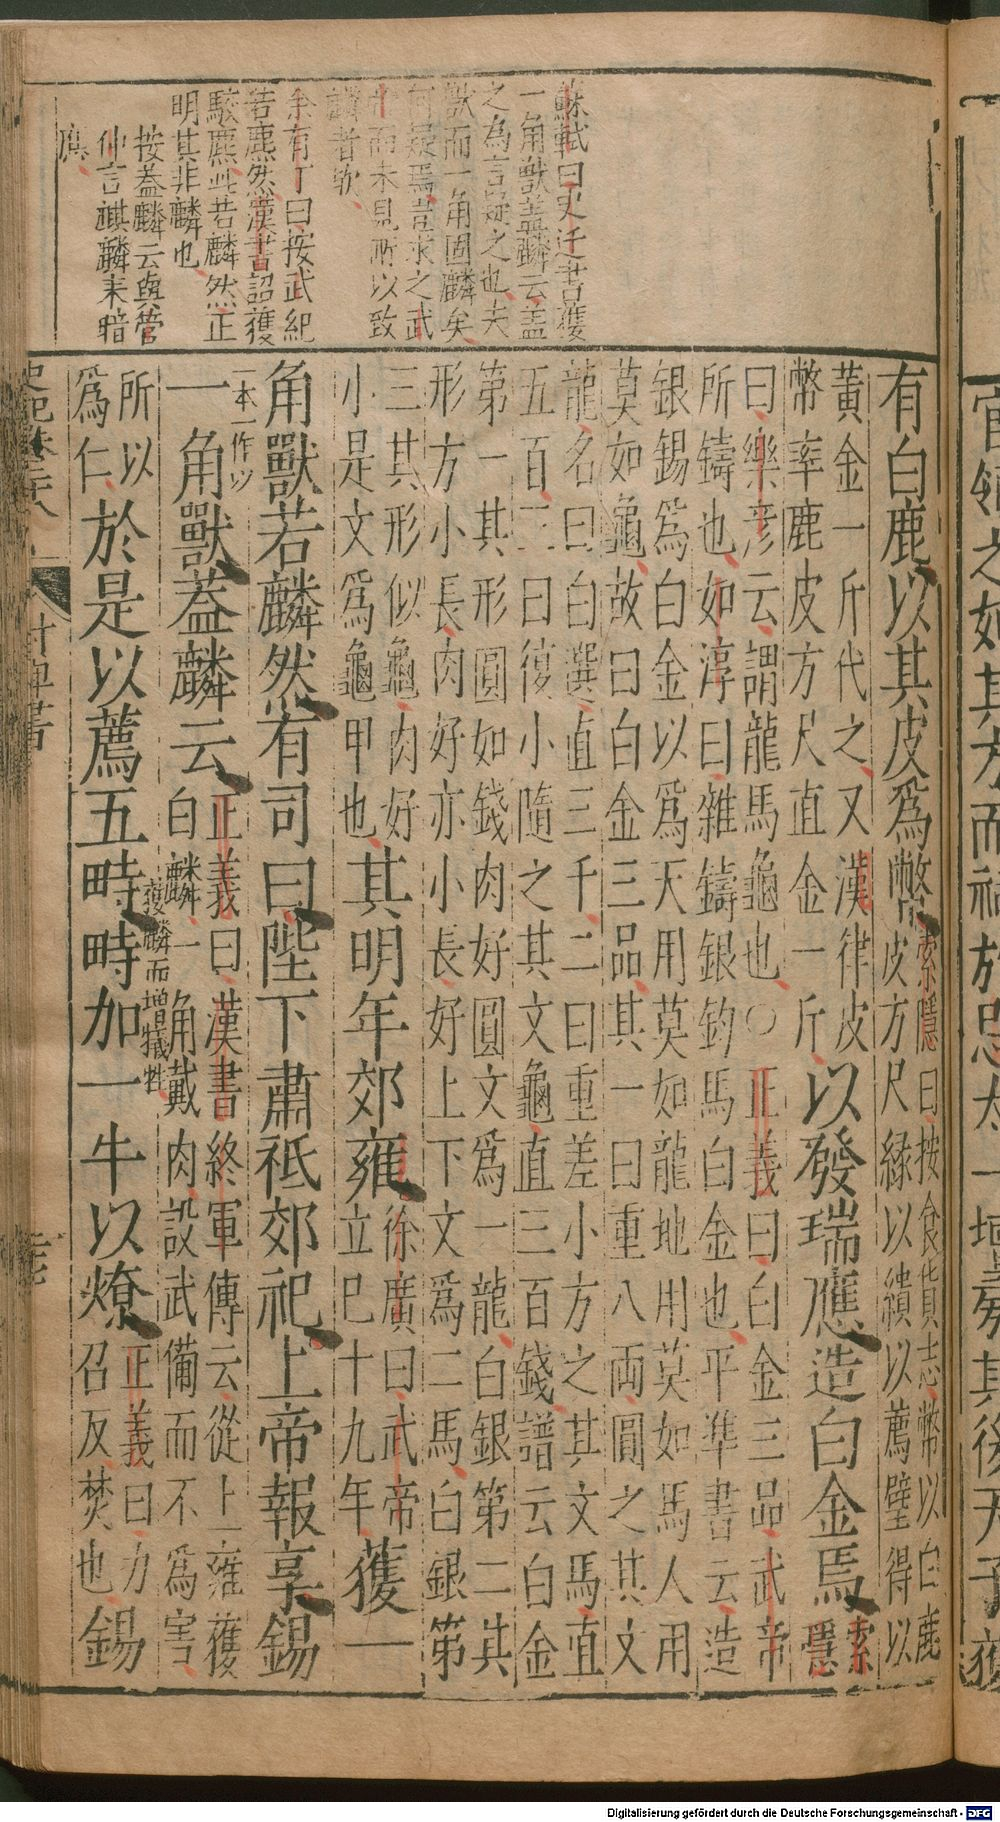 蘇軾曰史遷書獲
一角獸蓋麟云蓋
之為言疑之也夫
獸而一角固麟矣
何疑焉豈求之武
帝而未見所以致
麟者歟
余有丁曰按武紀
若麃然漢書詔獲
駮麃此若麟然正
明其非麟也
按蓋麟云與管
仲言麒麟末暗
應
有白鹿以其皮爲幣索隱曰按食貨志幣以白鹿
皮方尺緣以繢以薦璧得以
黃金一斤代之又漢律皮
幣率鹿皮方尺直金一斤以發瑞應造白金焉索
隱
曰樂彥云謂龍馬龜也○正義曰白金三品武帝
所鑄也如淳曰雜鑄銀鈞馬白金也平準書云造
銀錫爲白金以爲天用莫如龍地用莫如馬人用
莫如龜故曰白金三品其一曰重八両圓之其文
龍名曰白選直三千二曰重差小方之其文馬直
五百三曰復小隨之其文龜直三百錢譜云白金
第一其形圓如錢肉好圓文爲一龍白銀第二其
形方小長肉好亦小長好上下文爲二馬白銀第
三其形似龜肉好
小是文爲龜甲也其明年郊雍徐廣曰武帝
立巳十九年獲一
角獸若麟然有司曰陛下肅祗郊祀上帝報享錫
一本一作以
一角獸蓋麟云正義曰漢書終軍傳云從上雍獲
白麟一角戴肉設武備而不爲害
所以
爲仁於是以薦五畤畤加一牛以燎正義曰力
召反焚也錫
獲麟而增犧牲
史記卷二十八
封禪書
官領之如其方而祠於忌太一壇旁其後天子獲
Digitalisierung gefördert durch die Deutsche Forschungsgemeinschaft - DFG